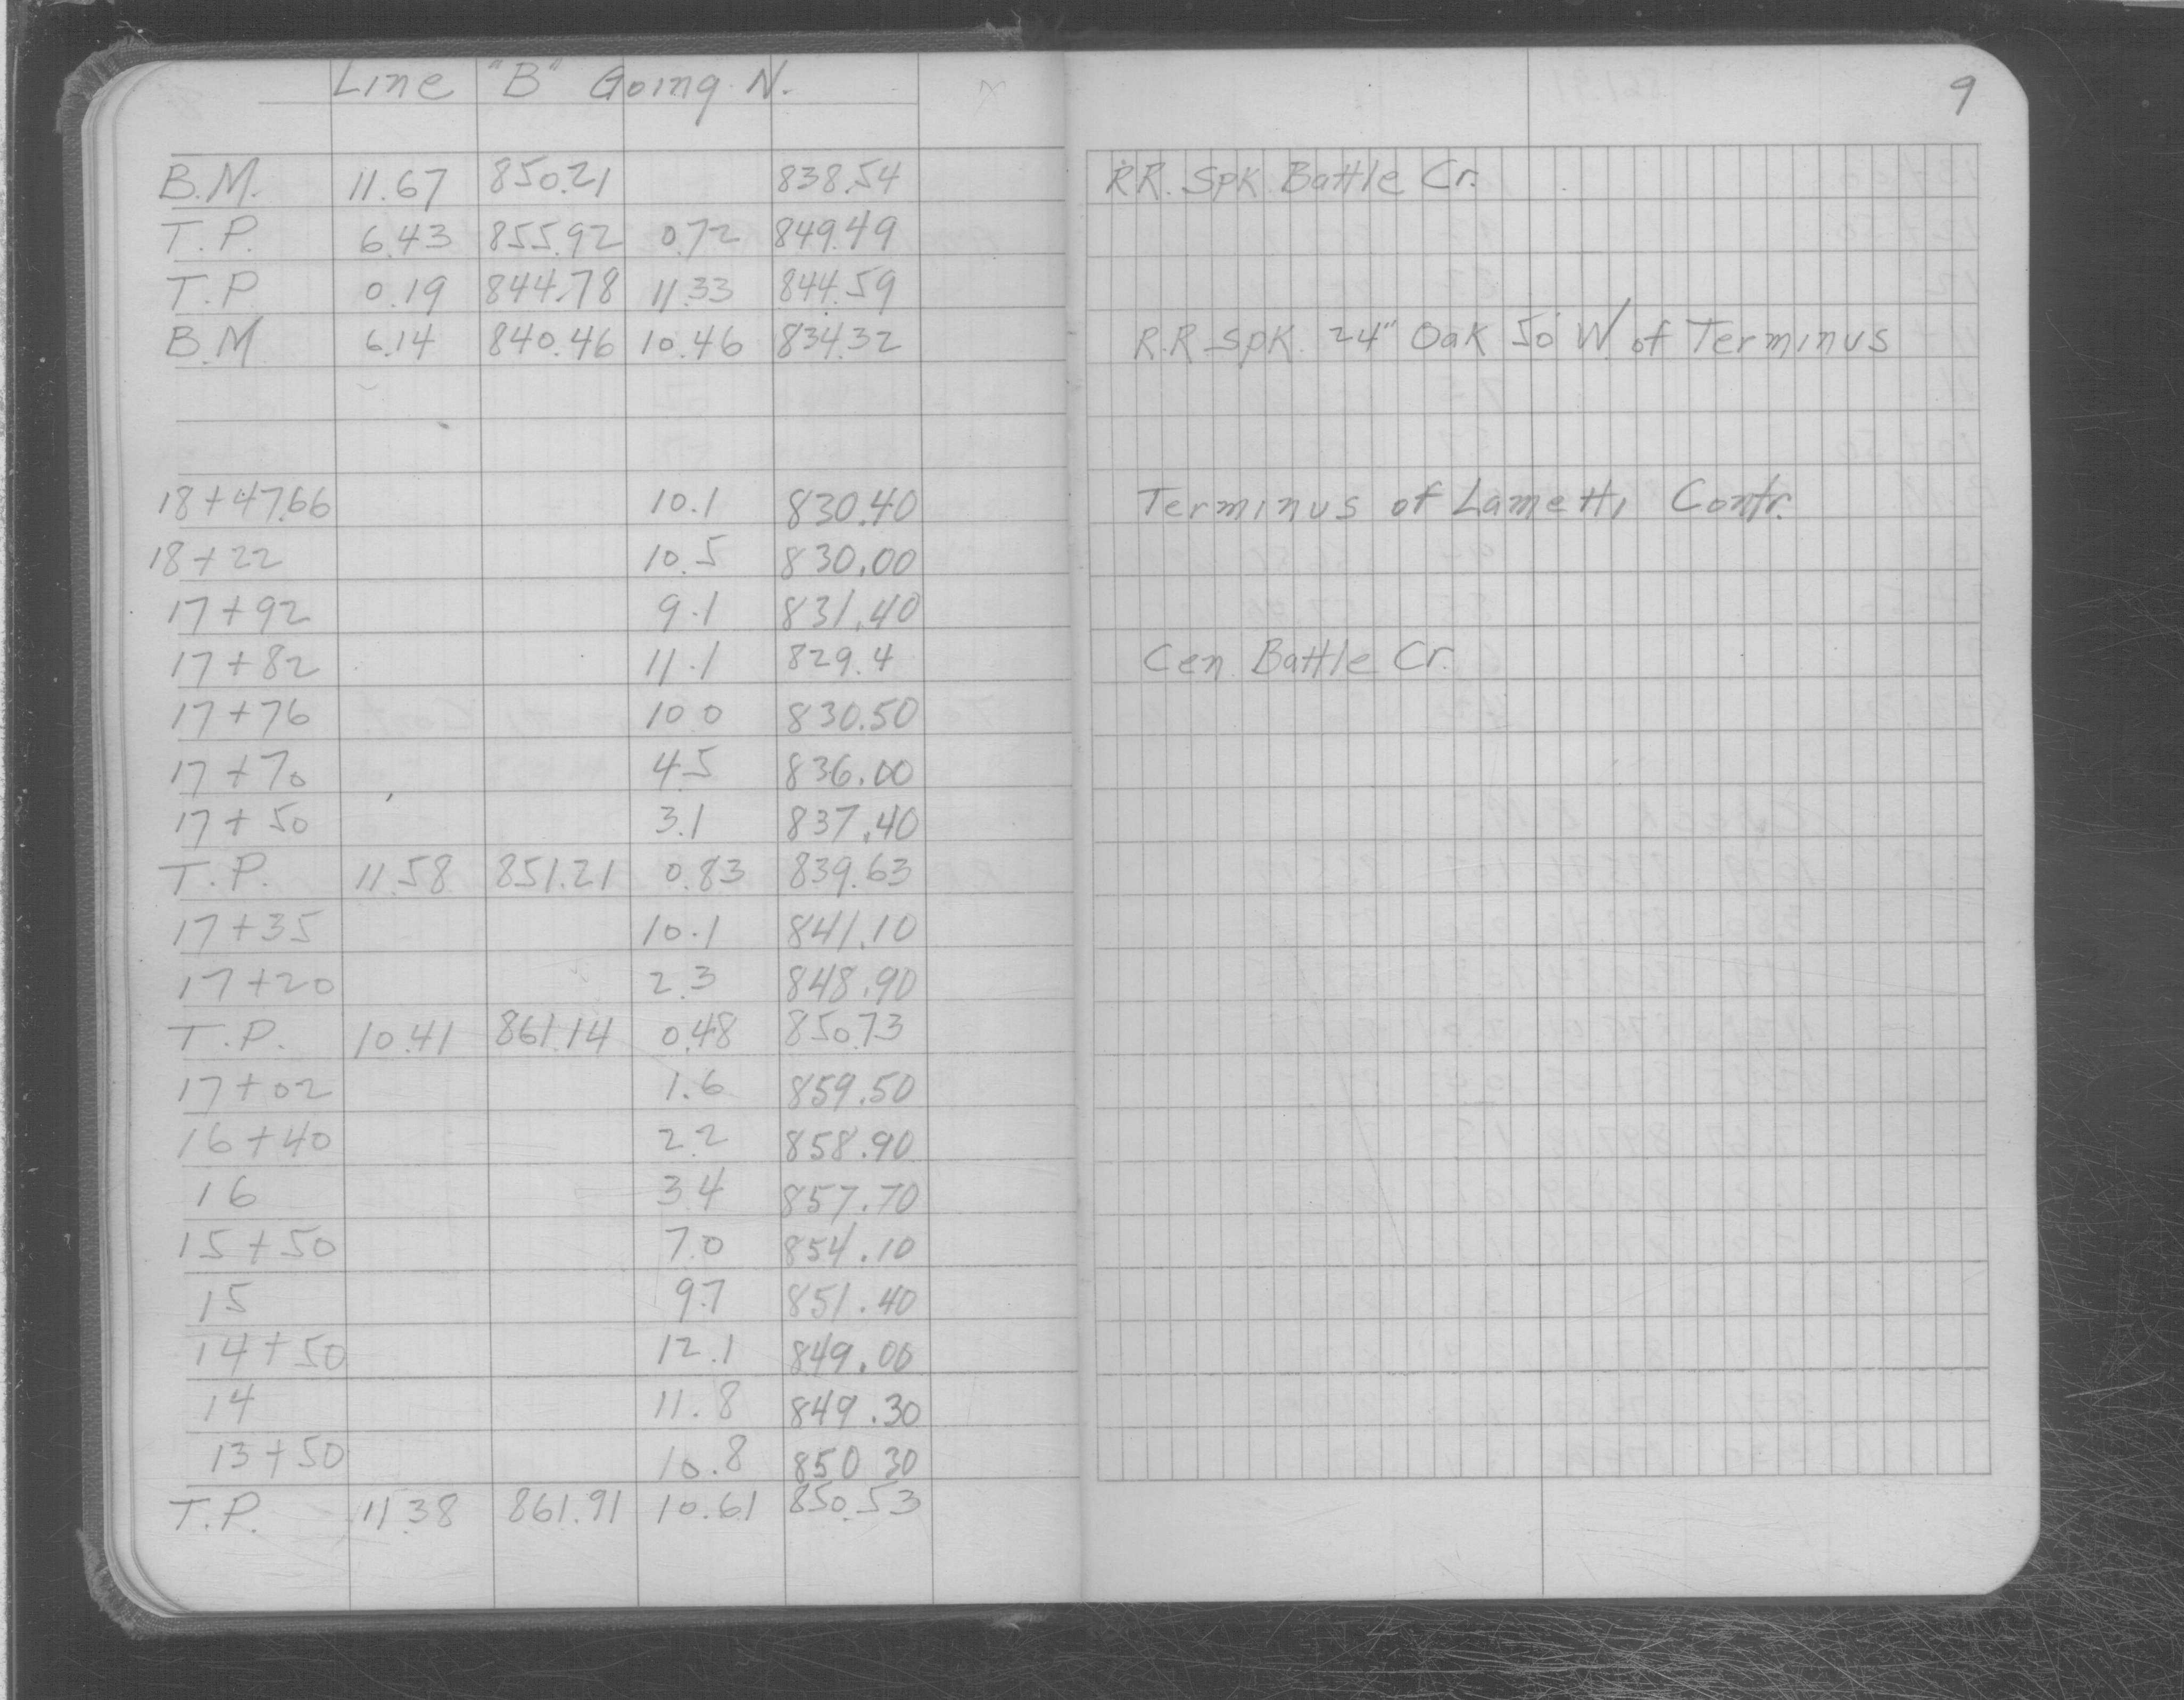 Line "B" Going N.
9
B.M. 11.67 850.21 838.54 RR. Spk Battle Cr.
T.P. 6.43 855.92 0.72 849.49
T.P. 0.19 844.78 11.33 844.59
B.M 6.14 840.46 10.46 834.32 R.R. Spk. 24" Oak 50' W. of Terminus
18+47.66 10.1 830.40 Terminus of Lametti Contr.
18+22 10.5 830.00
17+92 9.1 831.40
17+82 11.1 829.4 Cen. Battle Cr.
17+76 10 0 830.50
17+70 4.5 836.00
17+50 3.1 837.40
T.P. 11.58 851.21 0.83 839.63
17+35 10.1 841.10
17+20 2.3 848.90
T.P. 10.41 861.14 0.48 850.73
17+02 1.6 859.50
16+40 2.2 858.90
16 3.4 857.70
15+50 7.0 854.10
15 9.7 851.40
14+50 12.1 849.00
14 11.8 849.30
13+50 10.8 850 30
T.P. 11.38 861.91 10.61 850.53